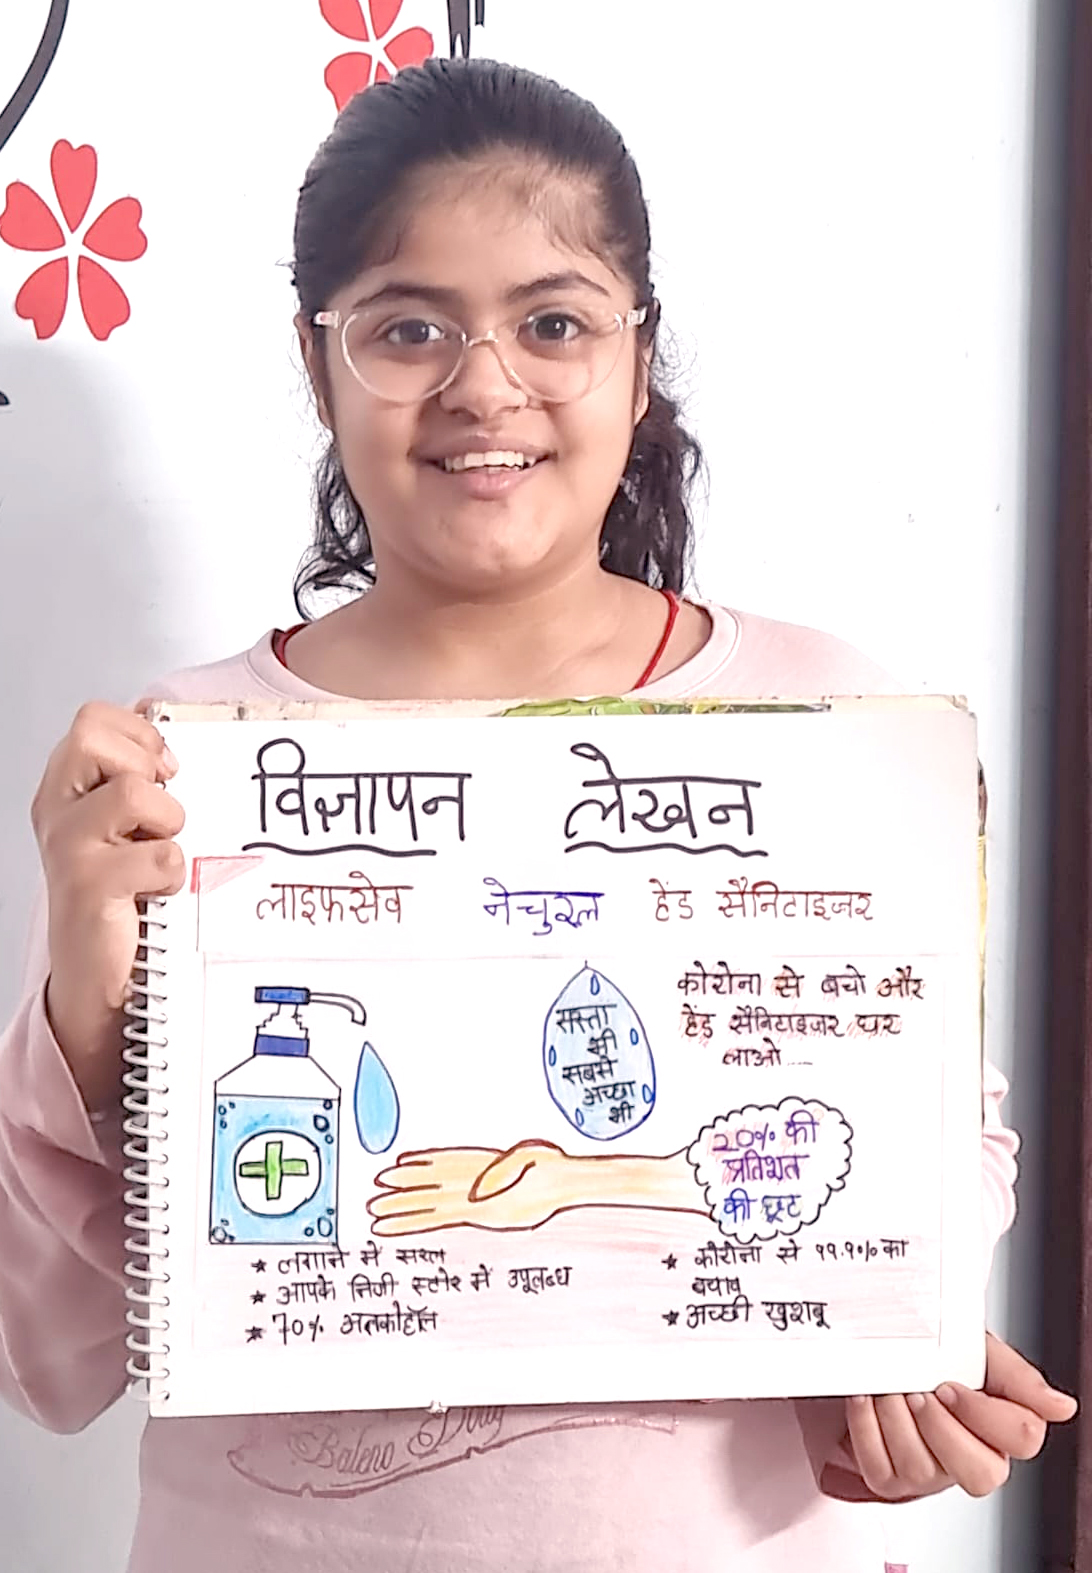 विज्ञापन लेखन
लाइफसेव नेचुरल हेंड सैनिटाइजर
सस्ता
भी
सबसे
अच्छा
भी
कोरोना से बचो और
हेंड सैनिटाइजर घर
लाओ....
20% की
प्रतिशत
की छूट
★ लगाने में सरल
★ आपके निजी स्टोर में उपलब्ध
★ 70% अल्कोहॉल
★ कोरोना से ९९.९०% का
बचाव
★ अच्छी खुशबू
Baleno